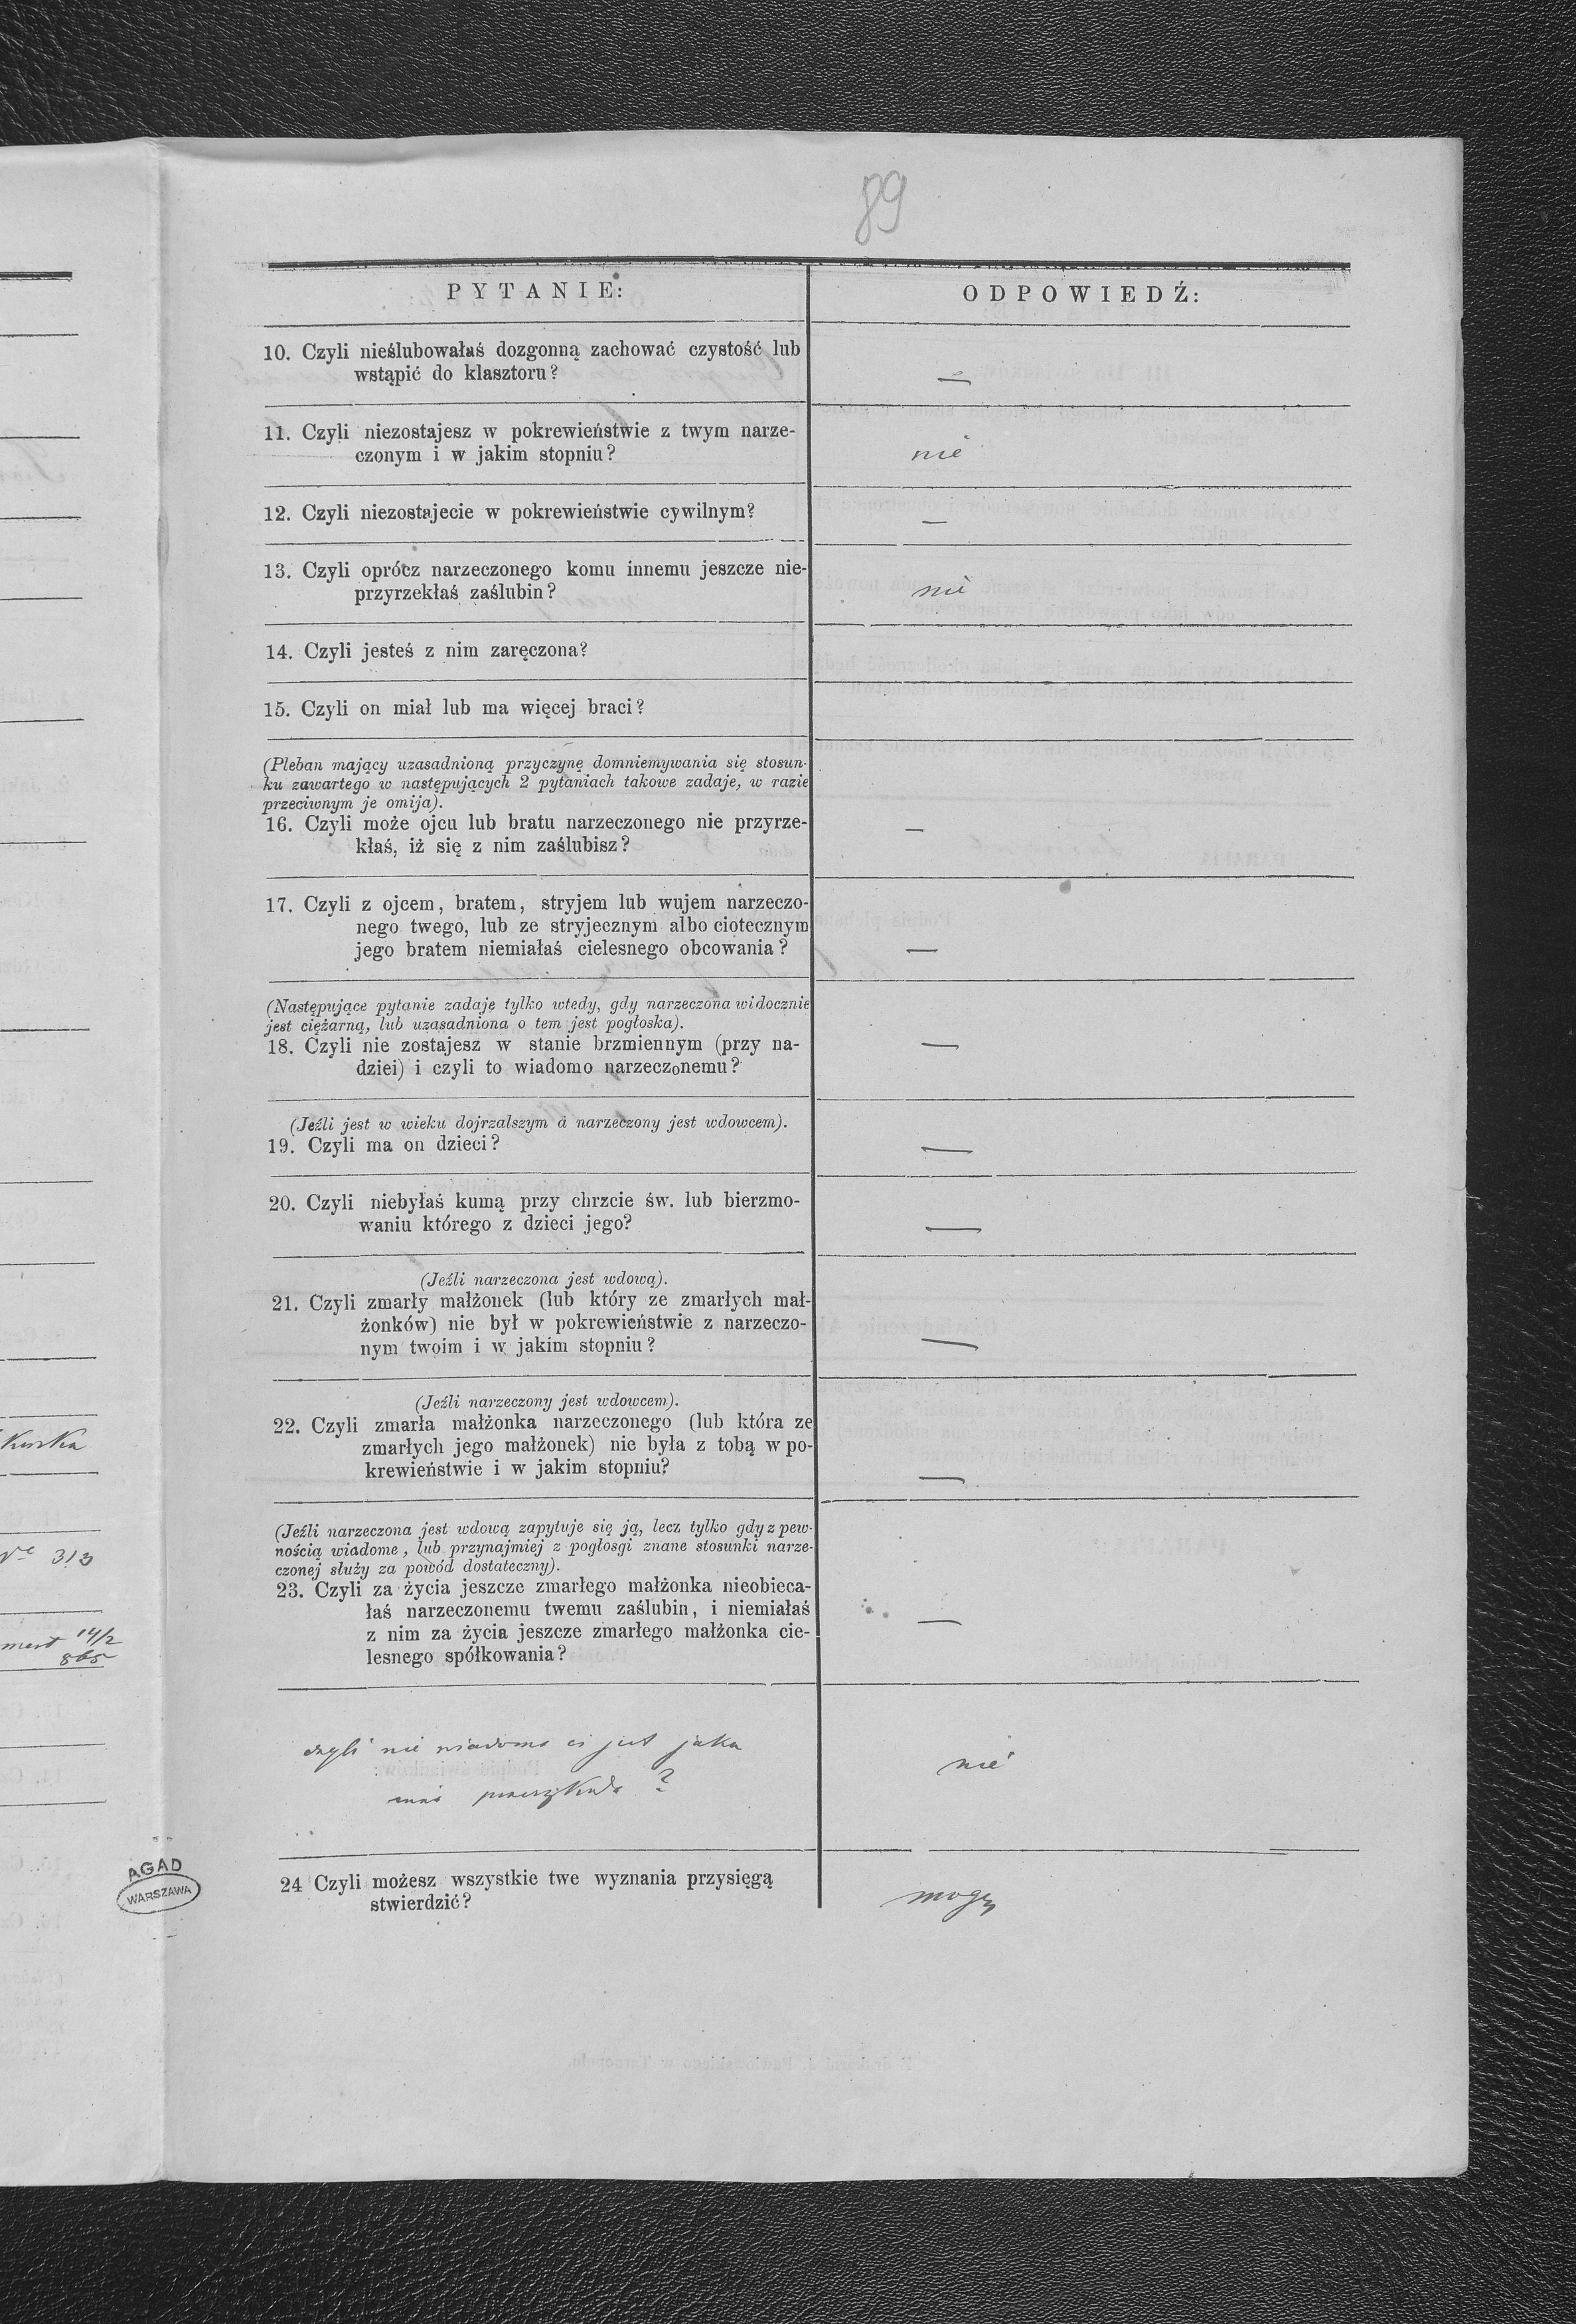 89
PYTANIE:
ODPOWIEDŹ:
10. Czyli nieślubowałaś dozgonną zachować czystość lub
wstąpić do klasztoru?
—
11. Czyli niezostajesz w pokrewieństwie z twym narze-
czonym i w jakim stopniu?
nie
12. Czyli niezostajecie w pokrewieństwie cywilnym?
—
13. Czyli oprócz narzeczonego komu innemu jeszcze nie-
przyrzekłaś zaślubin?
nie
14. Czyli jesteś z nim zaręczona?
15. Czyli on miał lub ma więcej braci?
(Pleban mający uzasadnioną przyczynę domniemywania się stosun-
ku zawartego w następujących 2 pytaniach takowe zadaje, w razie
przeciwnym je omija).
16. Czyli może ojcu lub bratu narzeczonego nie przyrze-
kłaś, iż się z nim zaślubisz?
—
17. Czyli z ojcem, bratem, stryjem lub wujem narzeczo-
nego twego, lub ze stryjecznym albo ciotecznym
jego bratem niemiałaś cielesnego obcowania?
—
(Następujące pytanie zadaje tylko wtedy, gdy narzeczona widocznie
jest ciężarną, lub uzasadniona o tem jest pogłoska).
18. Czyli nie zostajesz w stanie brzmiennym (przy na-
dziei) i czyli to wiadomo narzeczonemu?
—
(Jeźli jest w wieku dojrzalszym a narzeczony jest wdowcem).
19. Czyli ma on dzieci?
—
20. Czyli niebyłaś kumą przy chrzcie św. lub bierzmo-
waniu którego z dzieci jego?
—
(Jeźli narzeczona jest wdową).
21. Czyli zmarły małżonek (lub który ze zmarłych mał-
żonków) nie był w pokrewieństwie z narzeczo-
nym twoim i w jakim stopniu?
—
(Jeźli narzeczony jest wdowcem).
22. Czyli zmarła małżonka narzeczonego (lub która ze
zmarłych jego małżonek) nie była z tobą w po-
krewieństwie i w jakim stopniu?
—
(Jeźli narzeczona jest wdową zapytuje się ją, lecz tylko gdy z pew-
nością wiadome, lub przynajmiej z pogłosgi znane stosunki narze-
czonej służy za powód dostateczny).
23. Czyli za życia jeszcze zmarłego małżonka nieobieca-
łaś narzeczonemu twemu zaślubin, i niemiałaś
z nim za życia jeszcze zmarłego małżonka cie-
lesnego spółkowania?
—
czyli nie wiadomo ci jest jaka
inna przeszkoda?
nie
24 Czyli możesz wszystkie twe wyznania przysięgą
stwierdzić?
mogę
313
14/2
865
AGAD
WARSZAWA